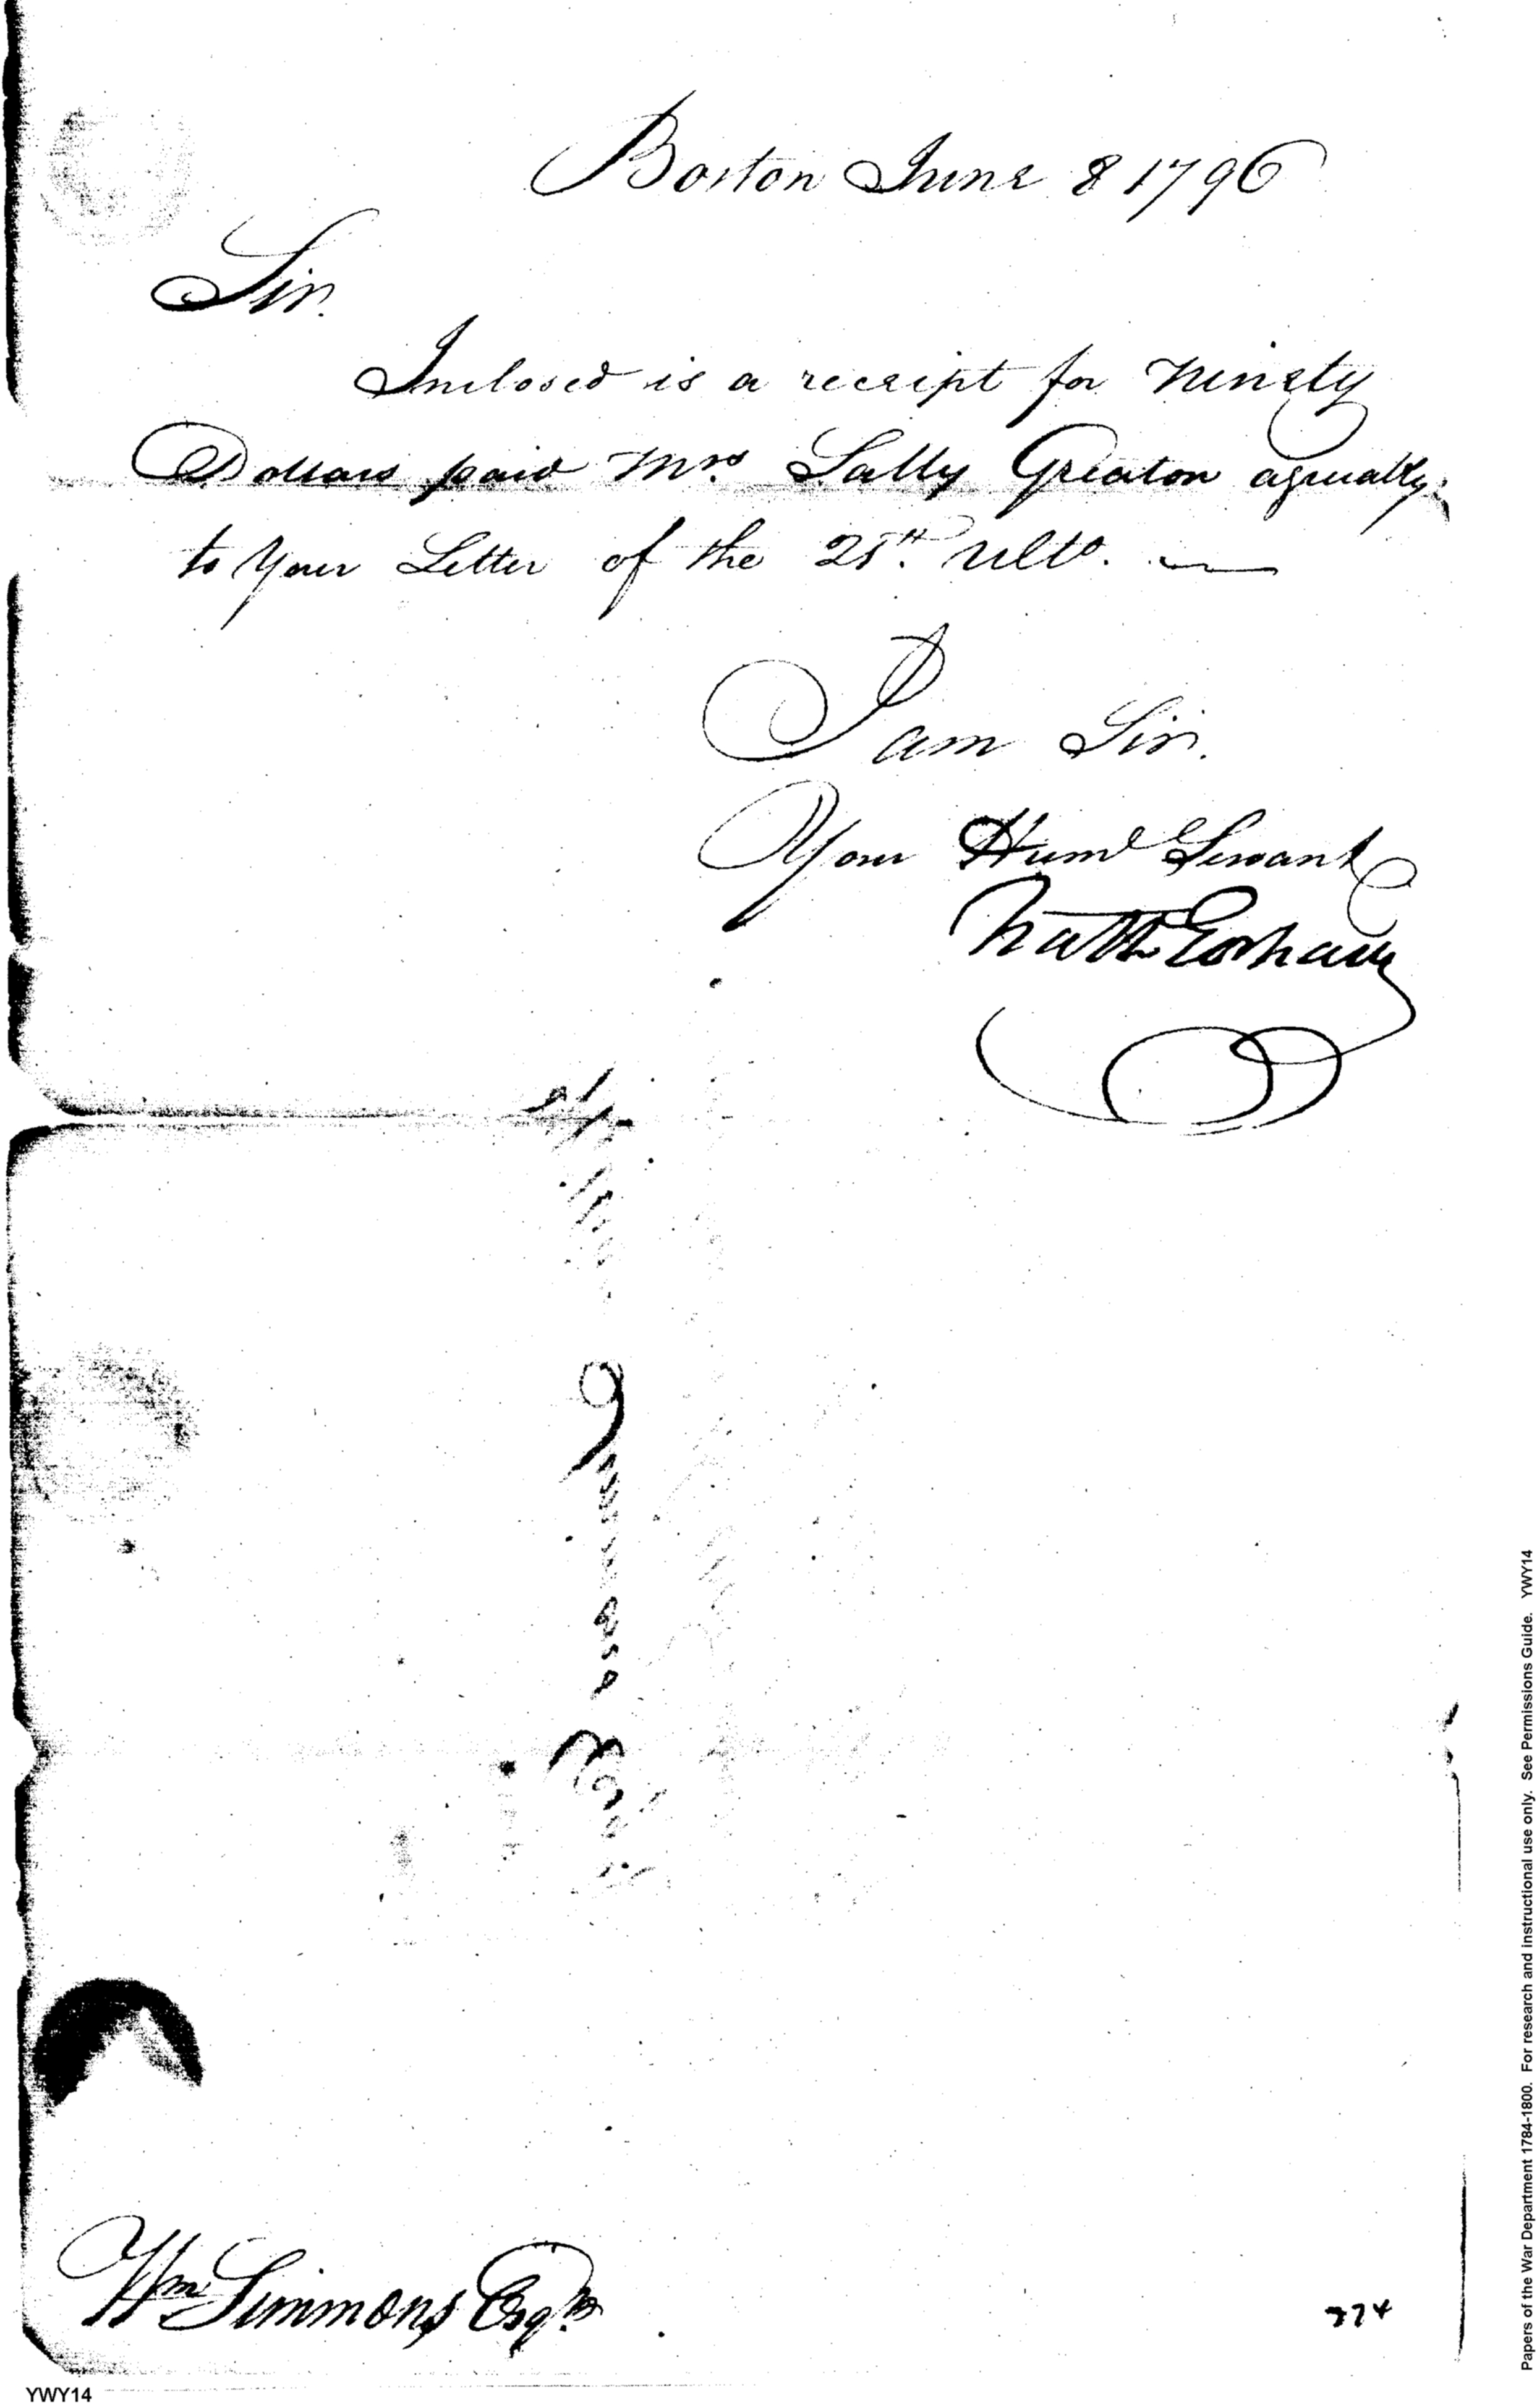 Boston June 8 1796
Sir.
Inclosed is a receipt for Ninety
Dollars paid Mrs. Sally Greaton agreeably
to Your Letter of the 25th. Ulto.
I am Sir.
Your Huml Servant
Nath Gorham
Wm Simmons Esqr.
274
YWY14
Papers of the War Department 1784-1800. For research and instructional use only. See Permissions Guide. YWY14